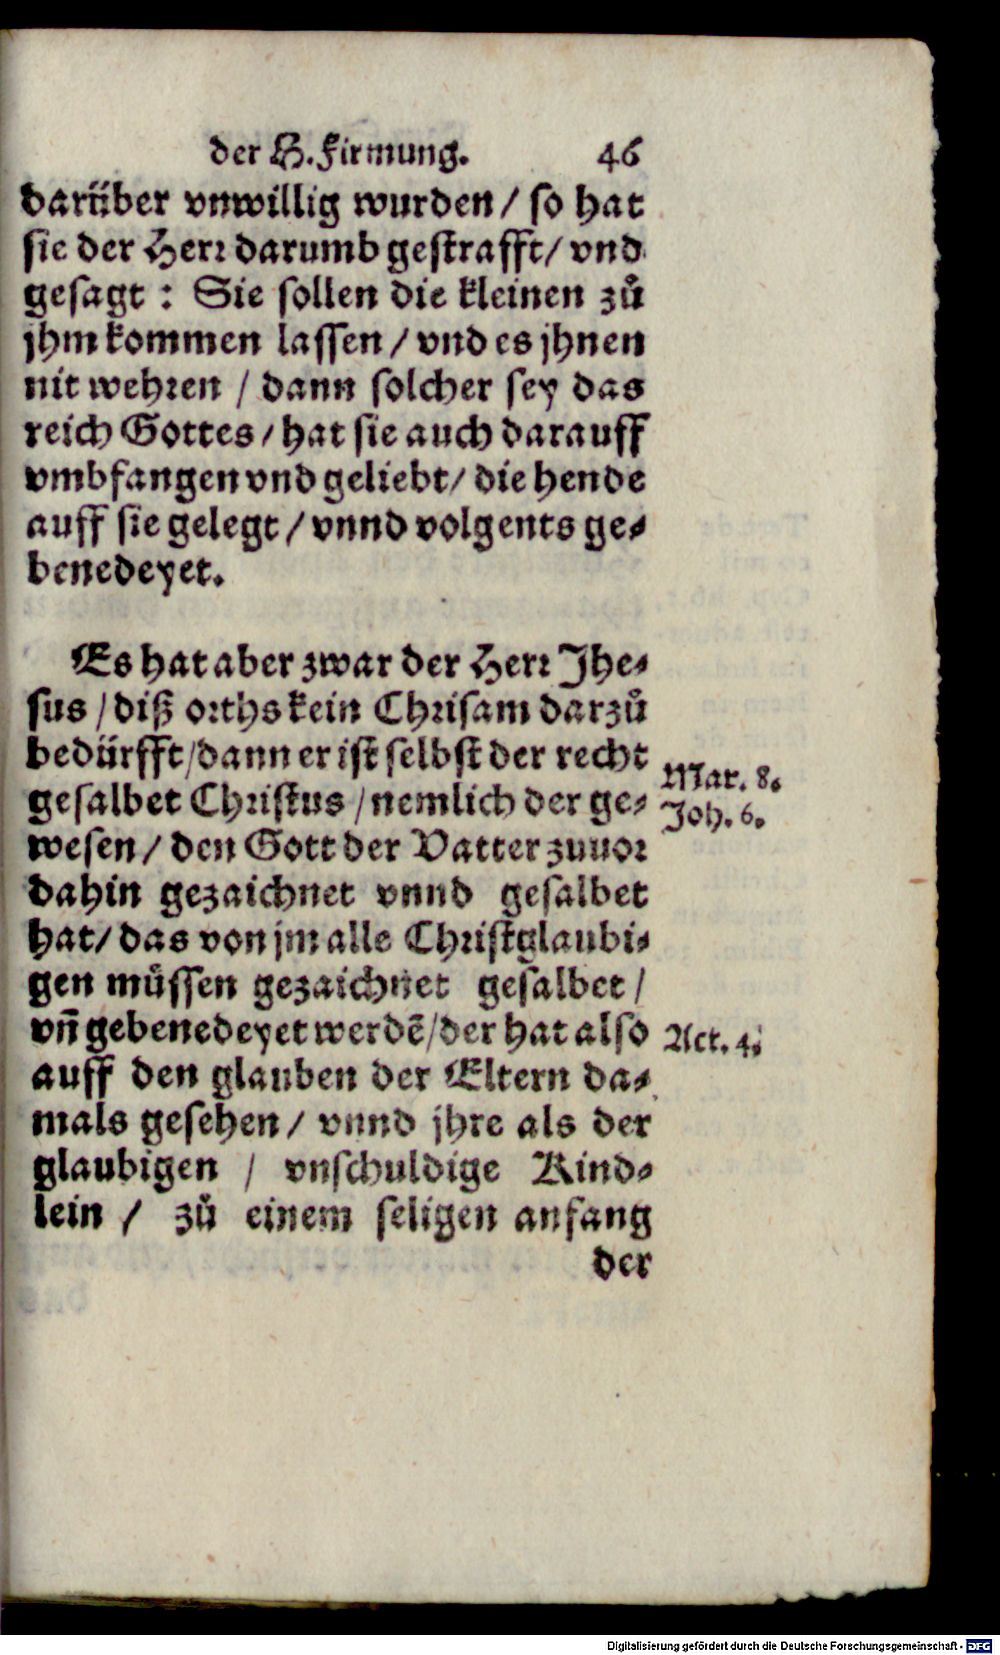 der H. Firmung. 46
darüber vnwillig wurden / so hat
sie der Herr darumb gestrafft / vnd
gesagt : Sie sollen die kleinen zů
jhm kommen lassen / vnd es jhnen
nit wehren / dann solcher sey das
reich Gottes / hat sie auch darauff
vmbfangen vnd geliebt / die hende
auff sie gelegt / vnnd volgents ge-
benedeyet.
Es hat aber zwar der Herr Jhe-
sus / diß orths kein Chrisam darzů
bedürfft / dann er ist selbst der recht
Mar. 8.
gesalbet Christus / nemlich der ge-
Joh. 6.
wesen / den Gott der Vatter zuuor
dahin gezaichnet vnnd gesalbet
hat / das von jm alle Christglaubi-
gen müssen gezaichnet gesalbet /
vñ gebenedeyet werdẽ / der hat also
Act. 4.
auff den glauben der Eltern da-
mals gesehen / vnnd jhre als der
glaubigen / vnschuldige Kind-
lein / zů einem seligen anfang
der
Digitalisierung gefördert durch die Deutsche Forschungsgemeinschaft - DFG